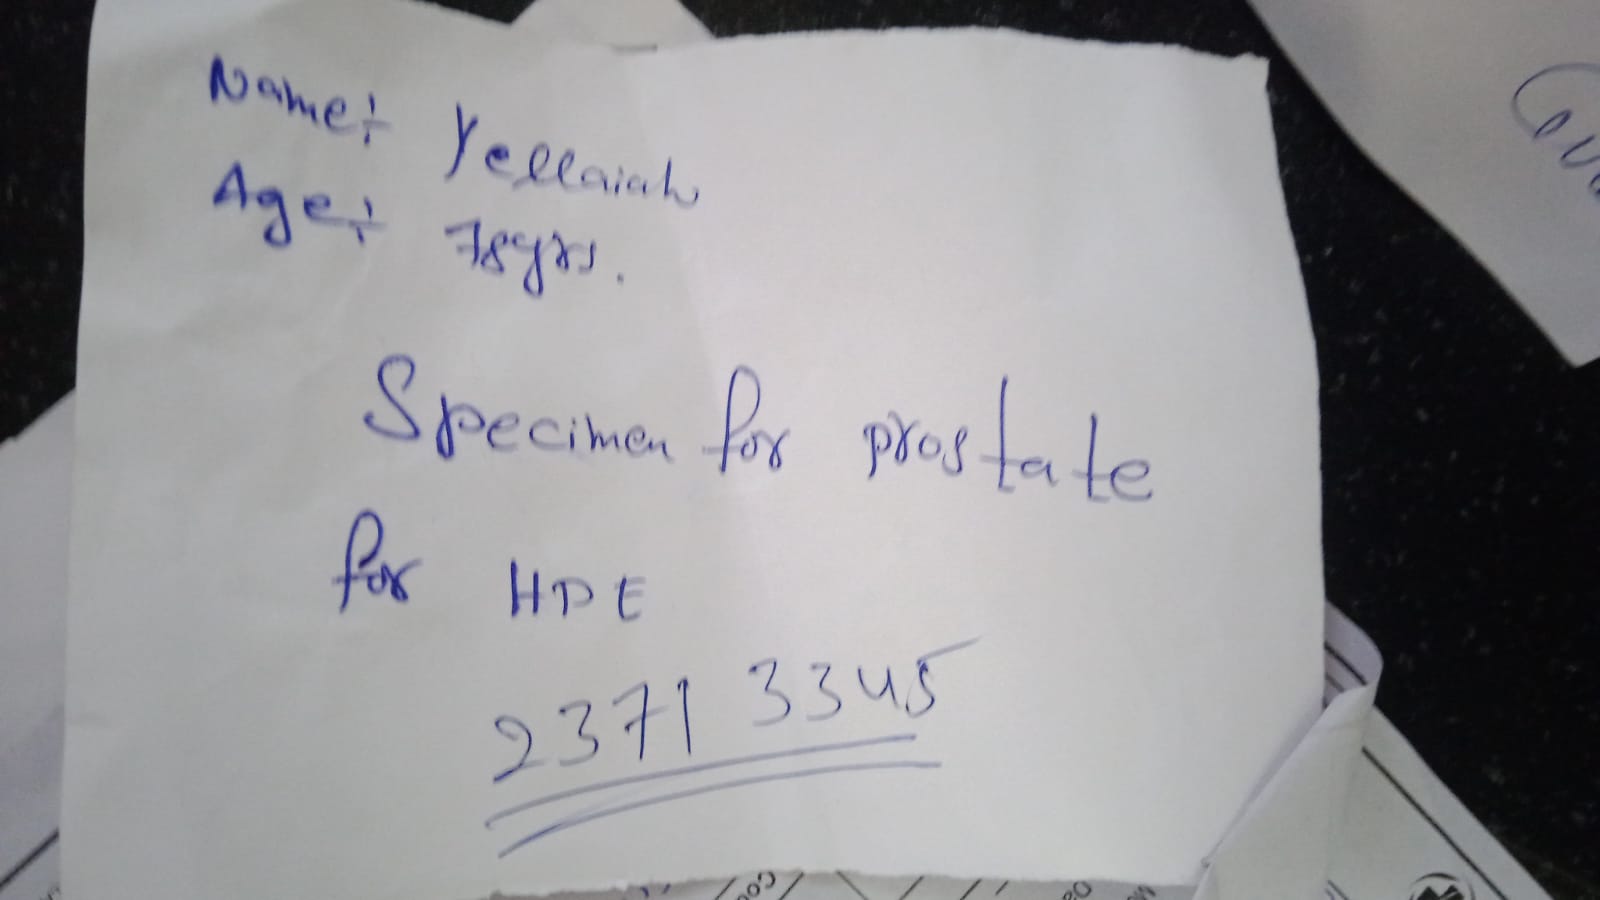 Name:
Yellaiah
Age:
78yrs.
Specimen for prostate
for HPE
2371 3345